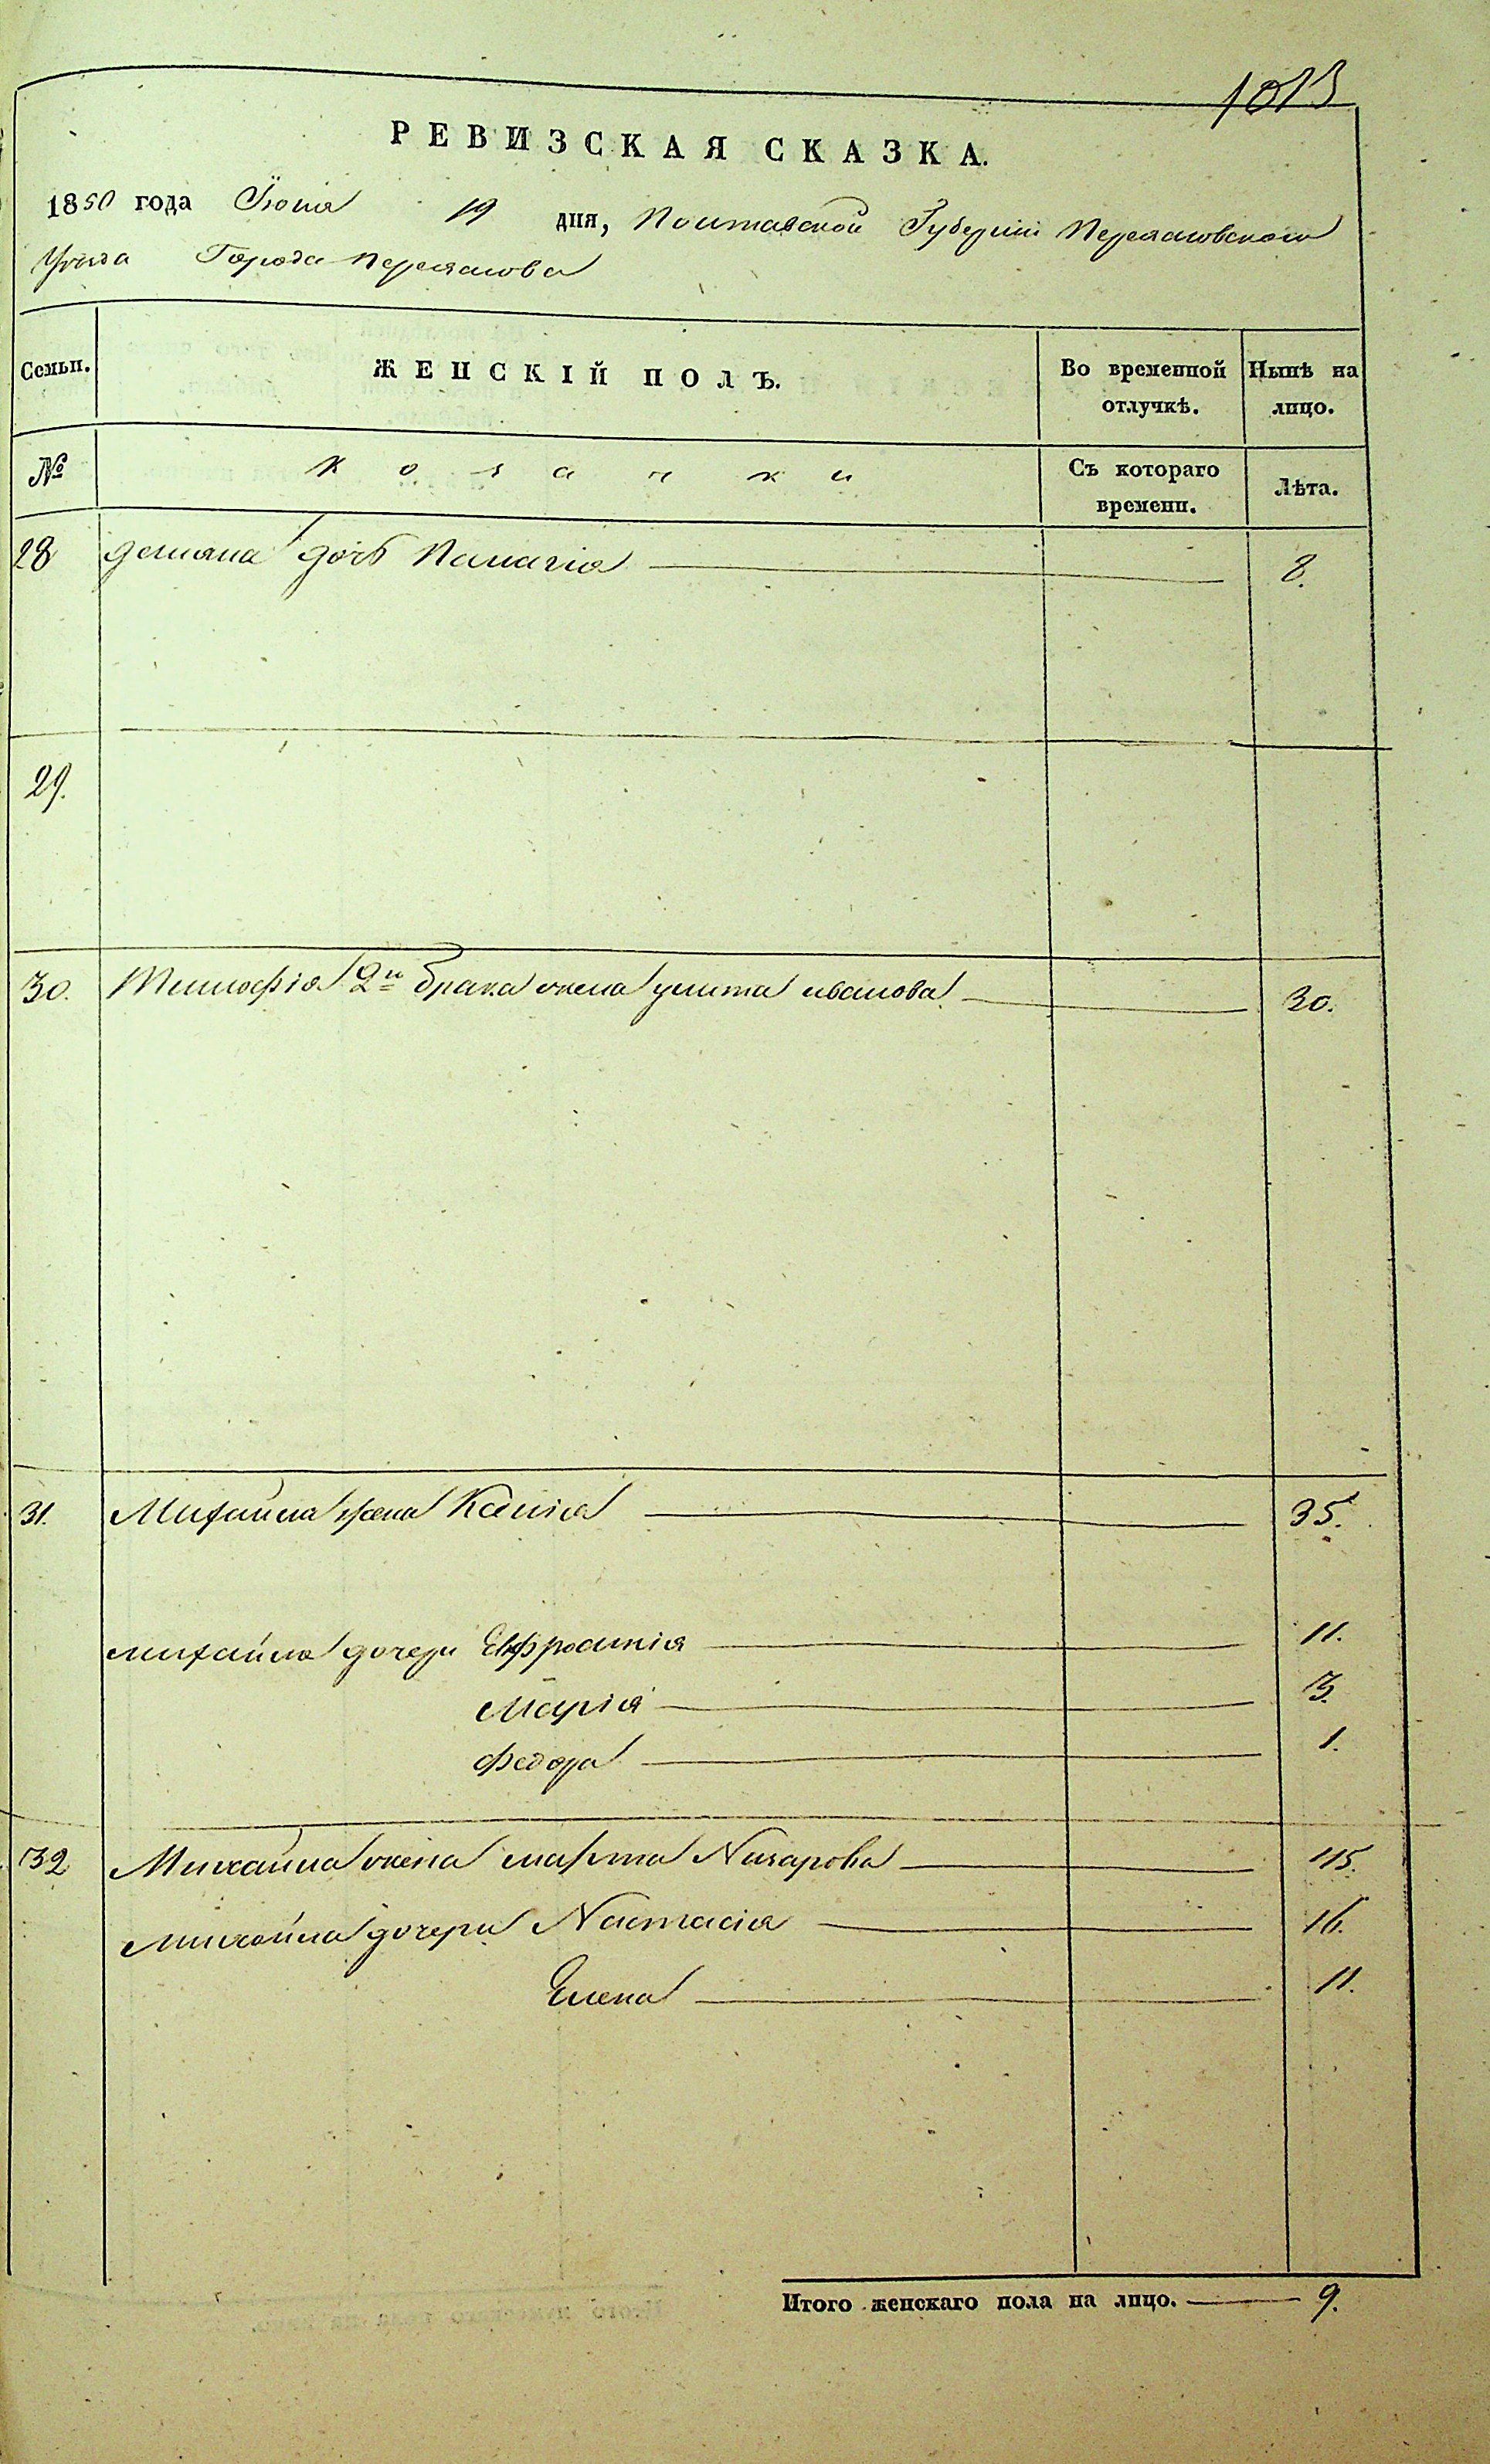 1013
РЕВИЗСКАЯ СКАЗКА.
1850 года Іюня 19 дня, Полтавской Губерніи Переяславского
Уѣзда Города Переяслова
Семьи. ЖЕНСКІЙ ПОЛЪ. Во временной отлучкѣ. Нынѣ на лицо.
№ Козачки Съ котораго времени. Лѣта.
28 Демяна дочь Палагія 8.
29.
30. Тимофія 2го брака жена Улита иванова 30.
31. Михайла жена Ксенія 35.
михайла дочери Евфросинія 11.
Марія 3.
Федора 1.
32 Михайла жена марта Назарова 45.
михайла дочери Настасія 16.
Елена 11.
Итого женскаго пола на лицо. 9.